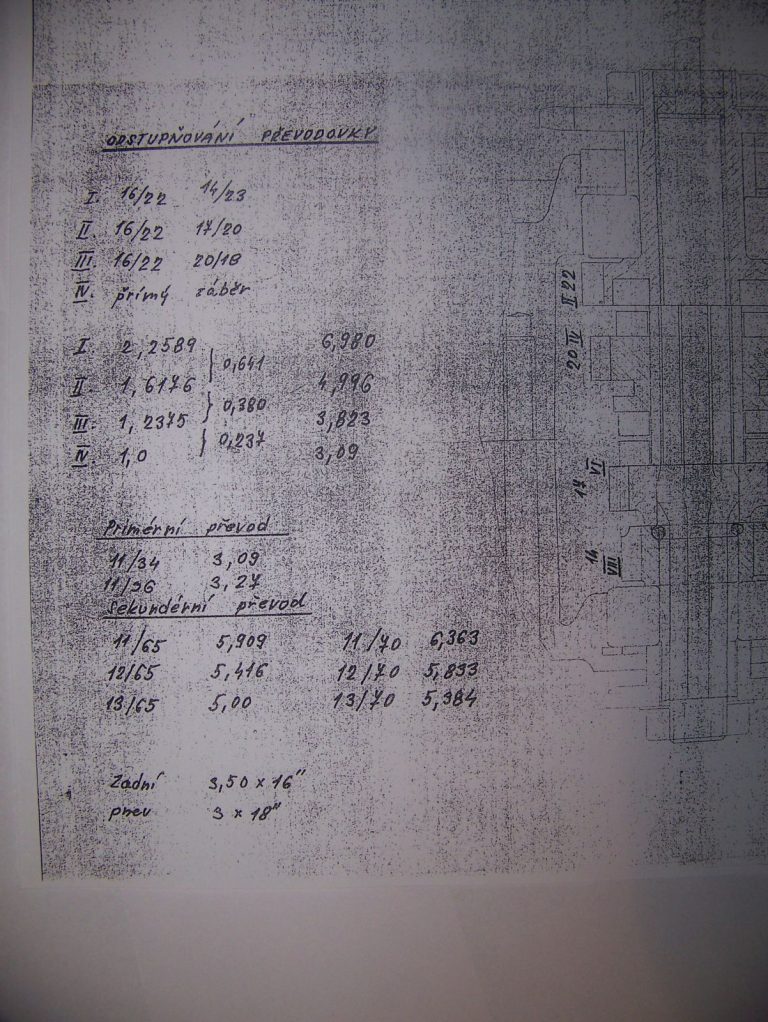 ODSTUPŇOVÁNÍ PŘEVODOVKY
I. 16/22 14/23
II. 16/22 17/20
III. 16/22 20/18
IV. přímý záběr
I. 2,2589 6,980
0,641
II. 1,6176 4,996
0,380
III. 1,2375 3,823
0,237
IV. 1,0 3,09
Primérní převod
11/34 3,09
11/36 3,27
Sekundérní převod
11/65 5,909 11/70 6,363
12/65 5,416 12/70 5,833
13/65 5,00 13/70 5,384
Zadní 3,50 x 16"
pnev 3 x 18"
II 22
20 IV
17 VI
14 VIII